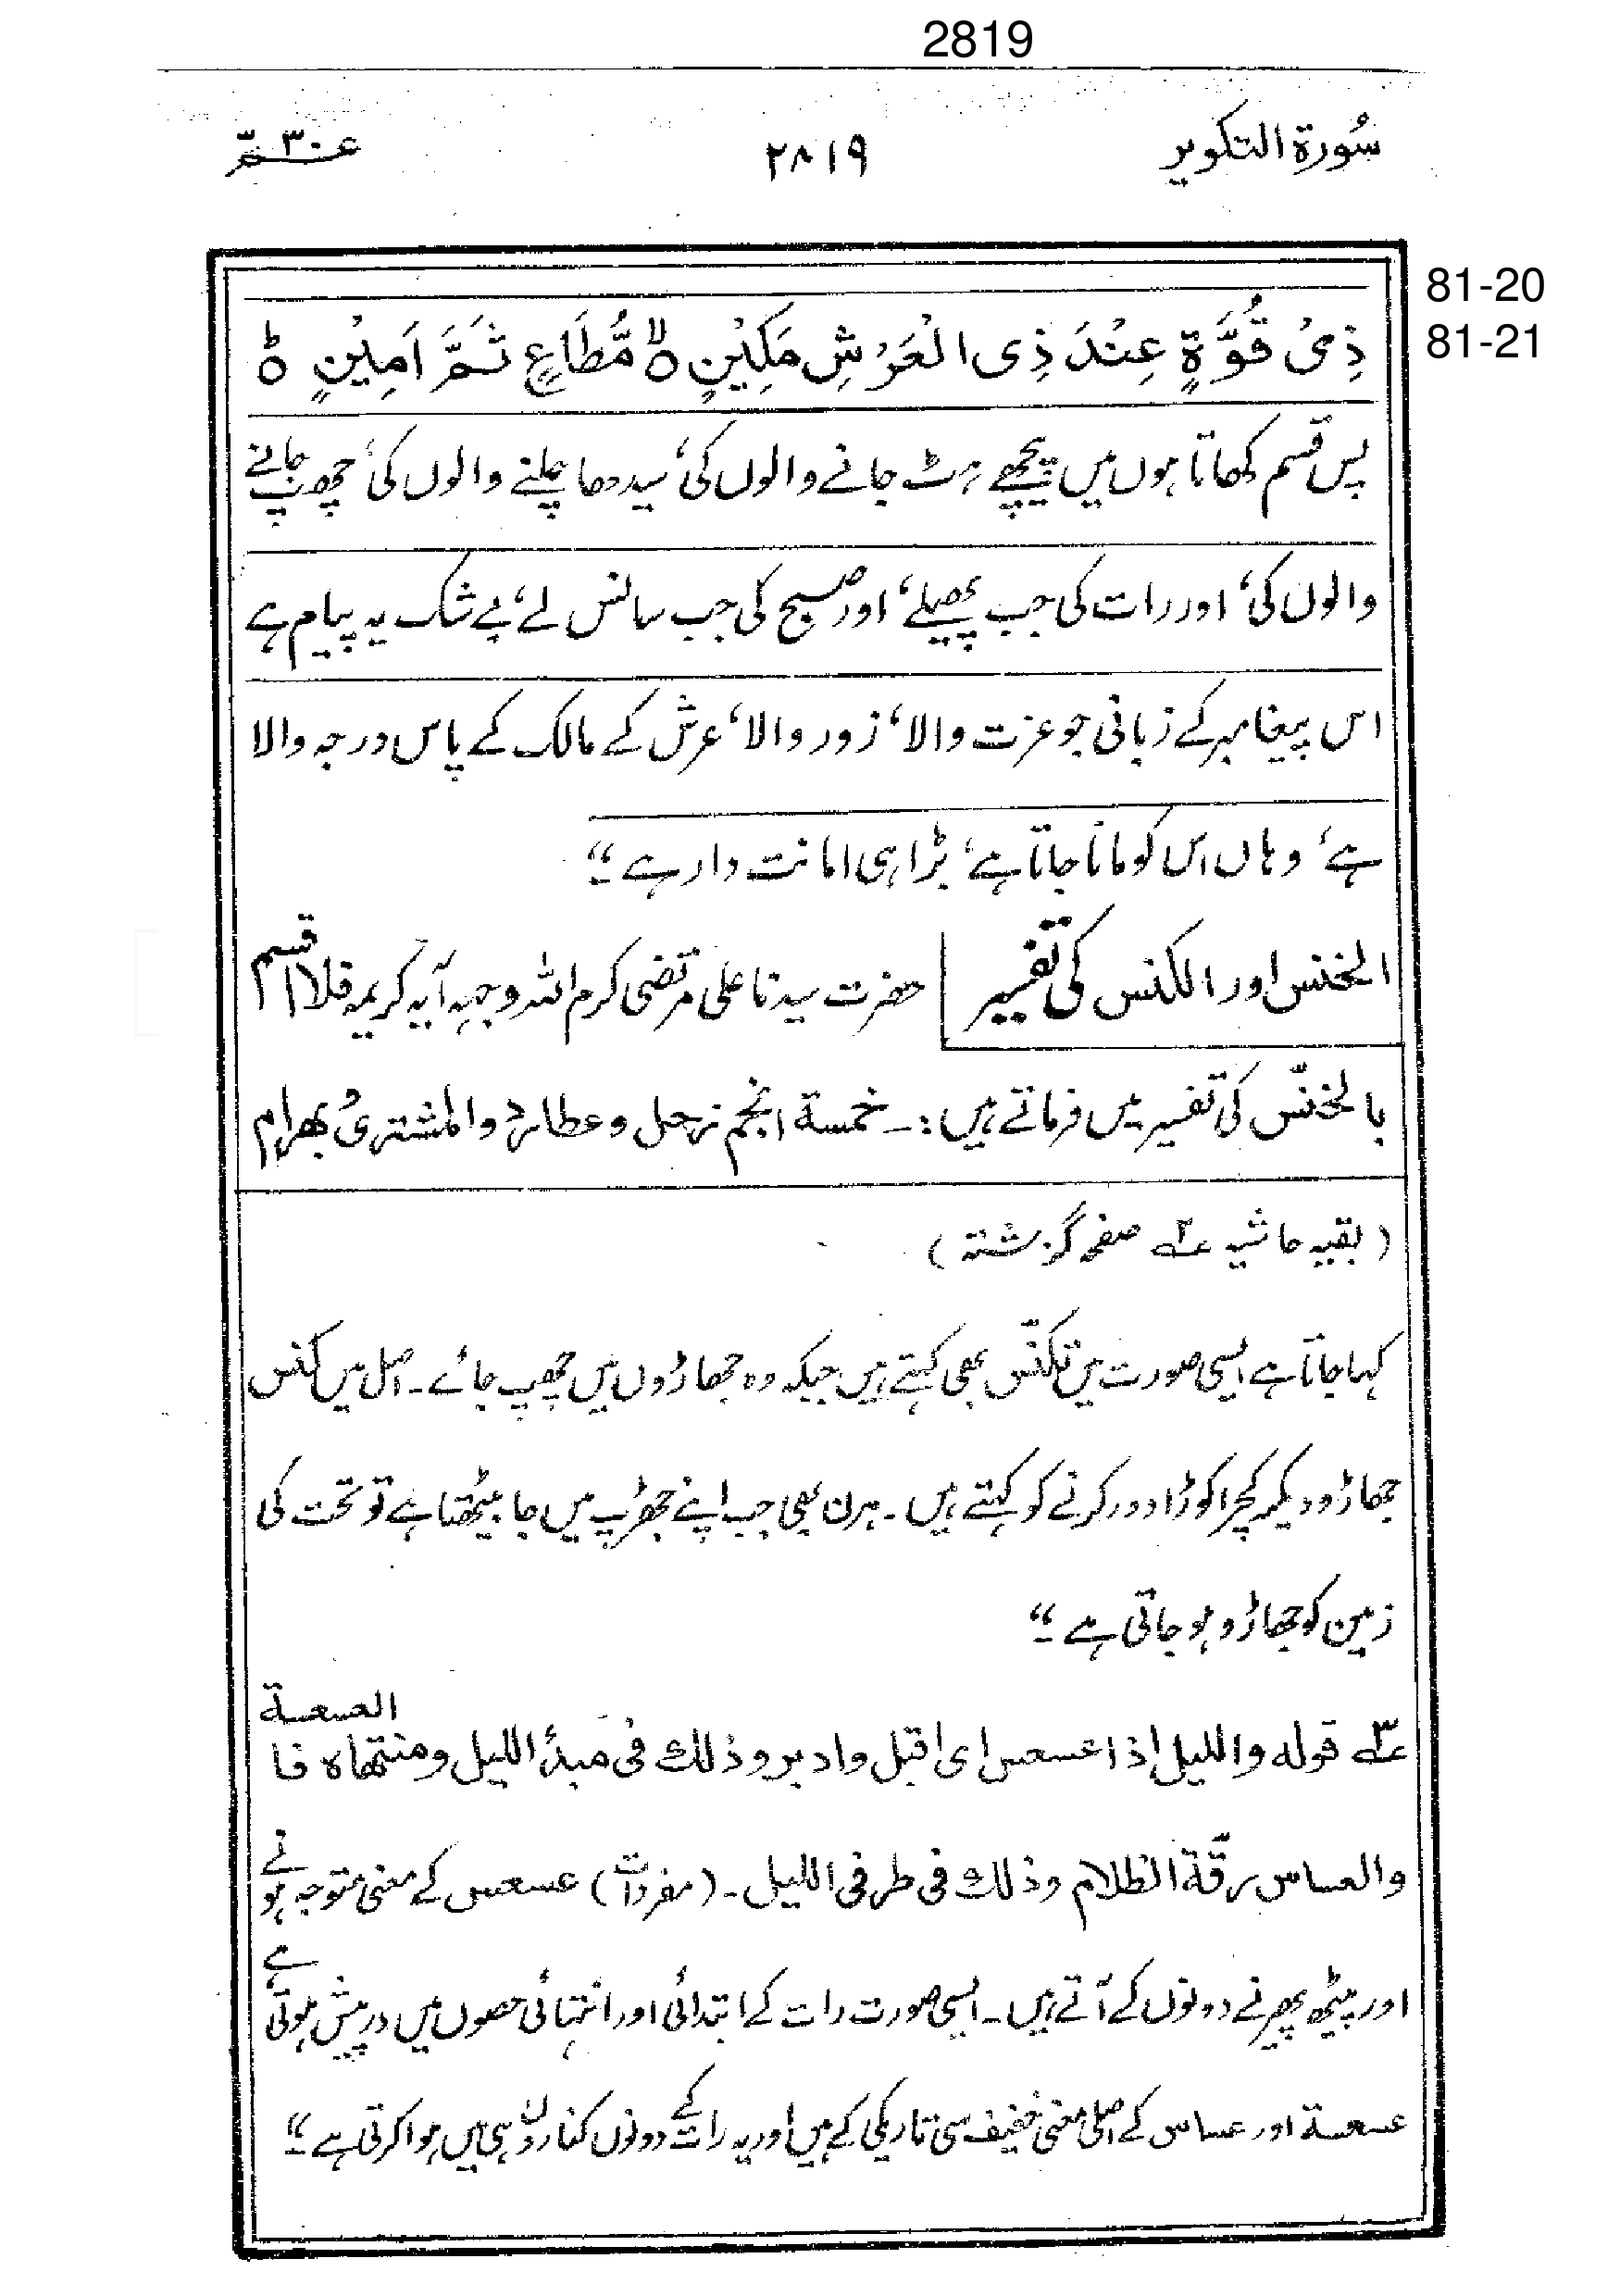 2819
سُورة التکویر ۲۸۱۹ عم ۳۰
81-20
81-21
ذِیْ قُوَّةٍ عِنْدَ ذِی الْعَرْشِ مَکِیْنٍ ۙ مُّطَاعٍ ثَمَّ اَمِیْنٍ ؕ
پس قسم کھاتا ہوں میں پیچھے ہٹ جانے والوں کی، سیدھا چلنے والوں کی، چھپ جانے
والوں کی، اور رات کی جب پھیلے، اور صبح کی جب سانس لے، بے شک یہ پیام ہے
اس پیغامبر کے زبانی جو عزت والا، زور والا، عرش کے مالک کے پاس درجہ والا
ہے، وہاں اس کو مانا جاتا ہے، بڑا ہی امانت دار ہے۔"
الخنس اور الکنس کی تفسیر
حضرت سیدنا علی مرتضی کرم اللہ وجہہ آیہ کریمہ فلا اقسم
بالخنّس کی تفسیر میں فرماتے ہیں:۔ خمسة انجم زحل وعطارد والمشتری بهرام
(بقیہ حاشیہ ۲ صفحہ گزشتہ)
کہا جاتا ہے ایسی صورت میں تکنّس بھی کہتے ہیں جبکہ وہ جھاڑوں میں چھپ جائے۔ اصل میں کنس
جھاڑو دیکر کچرا کوڑا دور کرنے کو کہتے ہیں۔ ہرن بھی جب اپنے جھڑپ میں جا بیٹھتا ہے تو تحت کی
زمین کو جھاڑو ہو جاتی ہے۔"
۳ قوله والليل إذا عسعس ای اقبل وادبر وذلك فی مبدأ الليل ومنتهاه فا العسعسة
والعساس رقّة الظلام وذلك فی طرفی الليل۔ (مفردات) عسعس کے معنی متوجہ ہونے
اور پیٹھ پھیرنے دونوں کے آتے ہیں۔ ایسی صورت رات کے ابتدائی اور انتہائی حصوں میں درپیش ہوتی ہے
عسعسة اور عساس کے اصلی معنی خفیف سی تاریکی کے ہیں اور یہ رات کے دونوں کناروں ہی میں ہوا کرتی ہے۔"